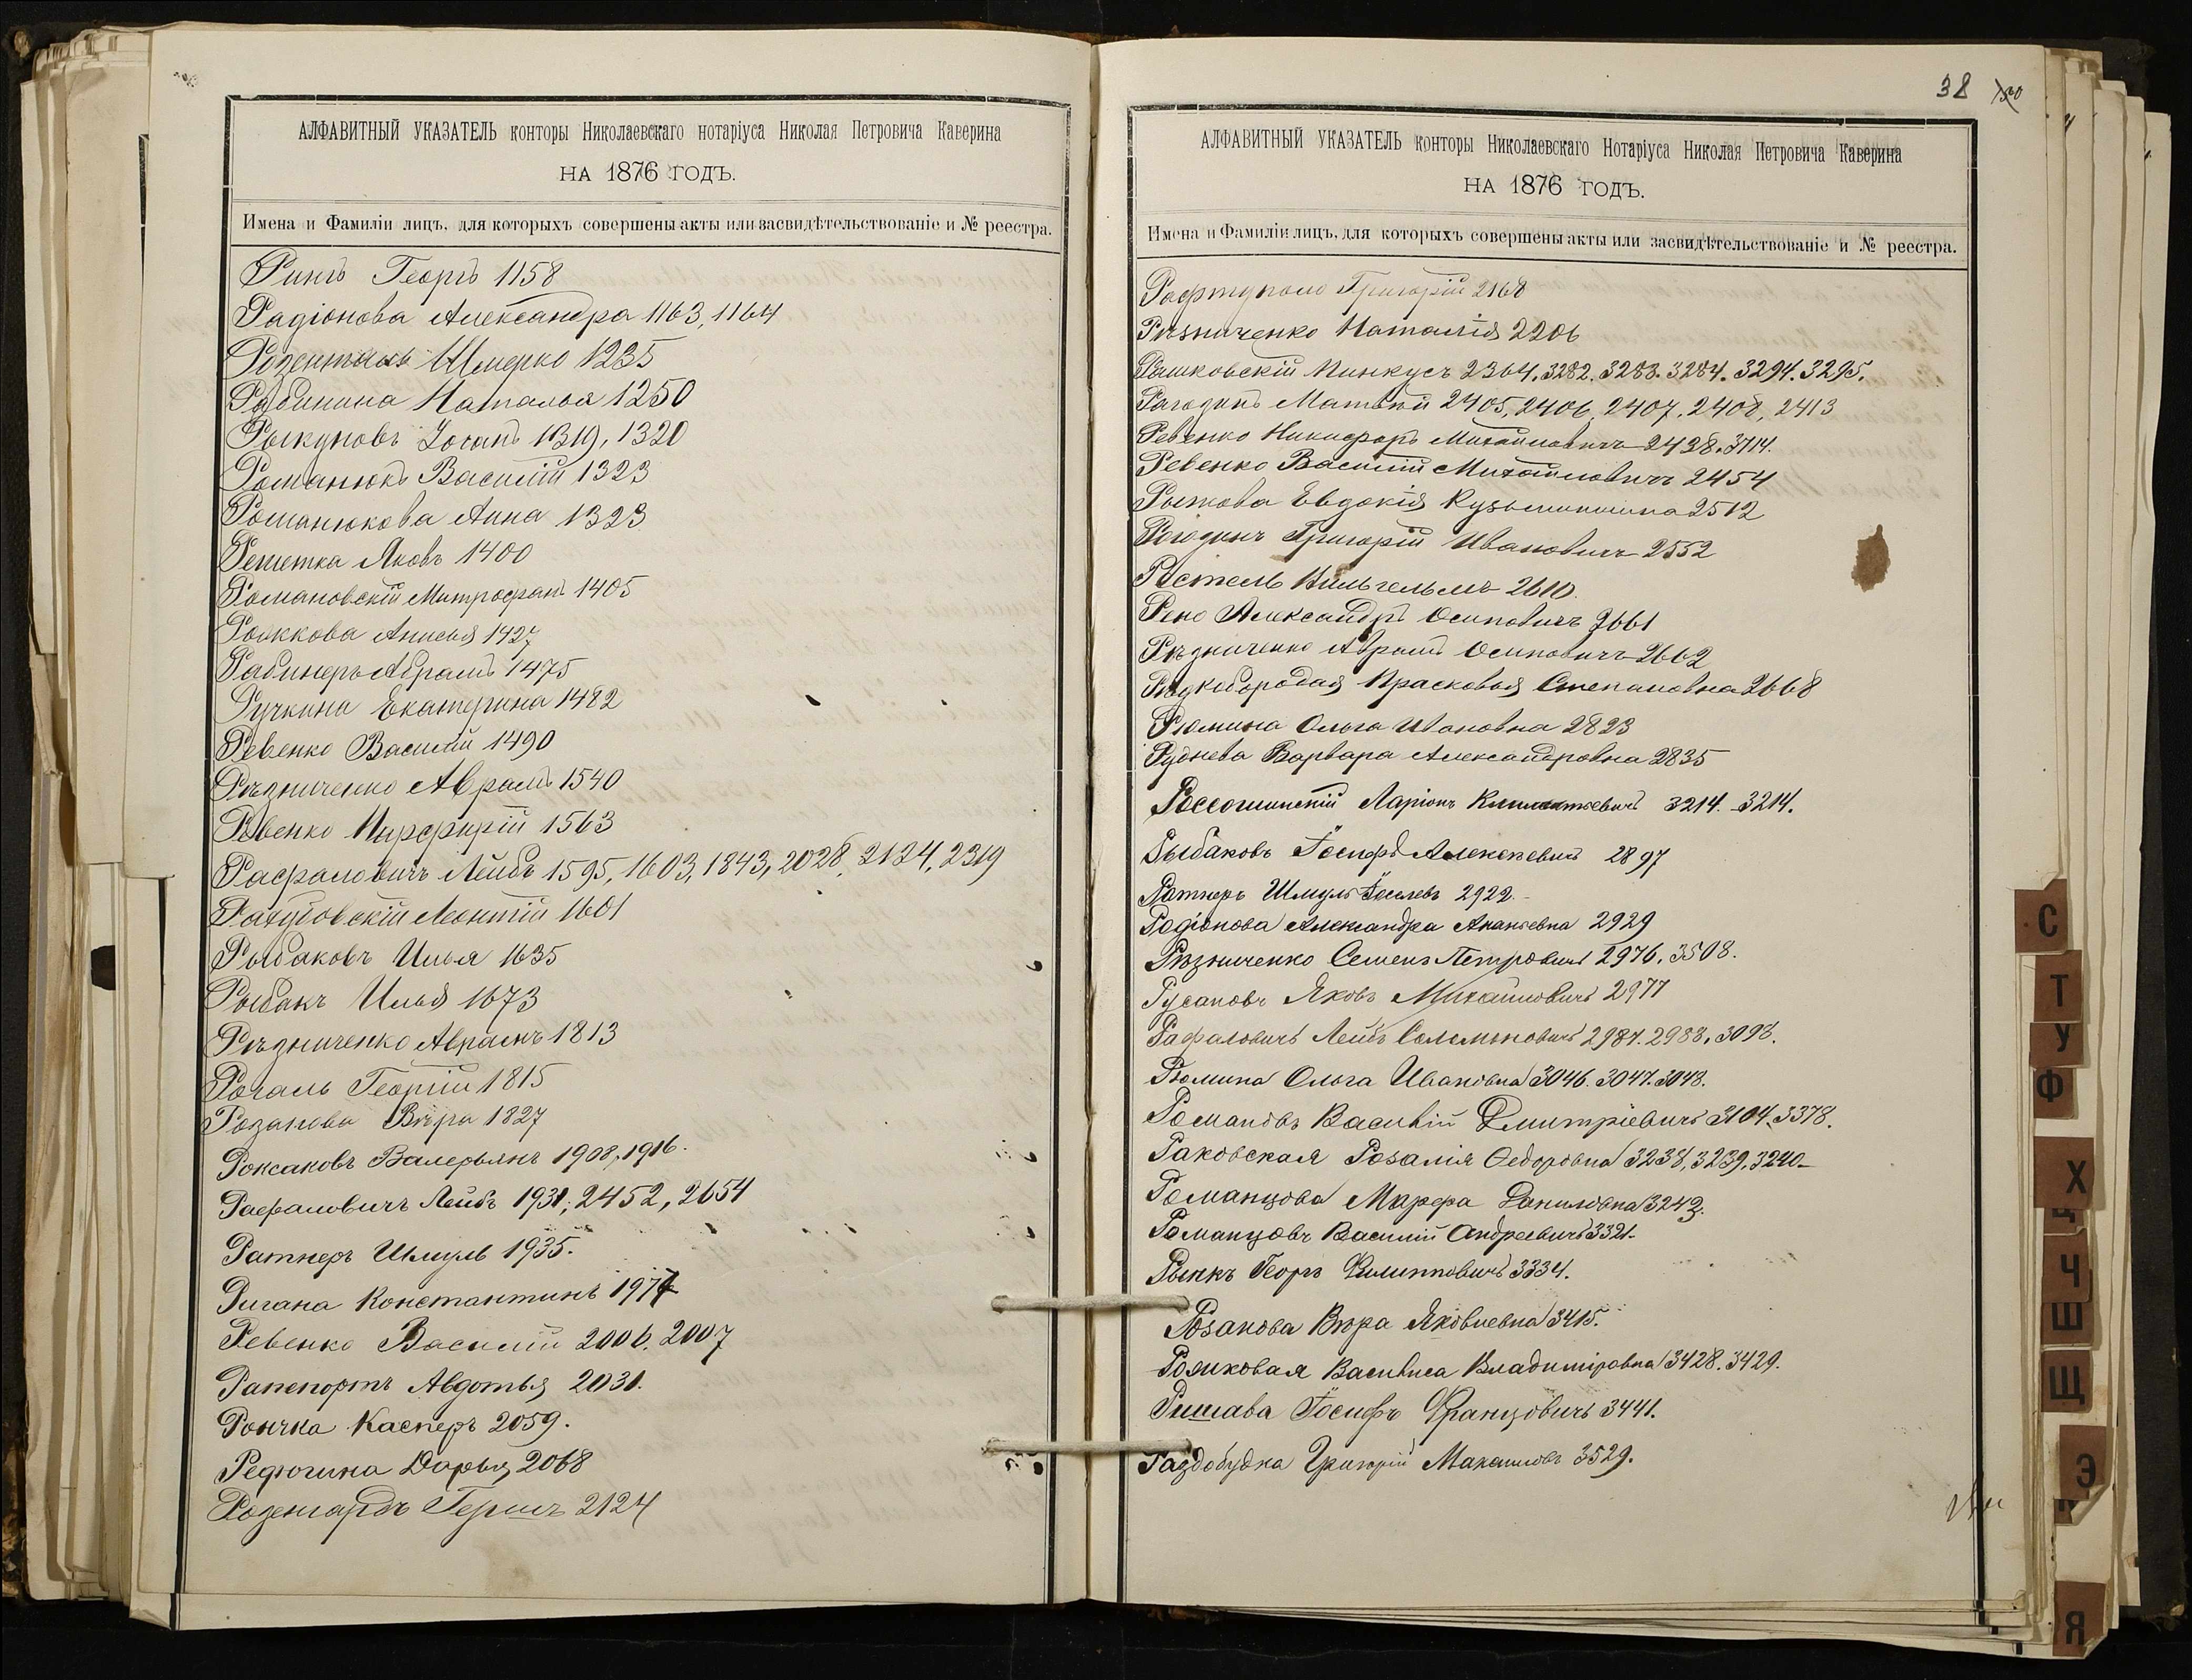 АЛФАВИТНЫЙ УКАЗАТЕЛЬ конторы Николаевскаго нотаріуса Николая Петровича Каверина
НА 1876 ГОДЪ.
Имена и Фамиліи лицъ, для которыхъ совершены акты или засвидѣтельствованіе и № реестра.
Рингъ Георгъ 1158
Радіонова Александра 1163, 1164
Розенталь Шмерко 1235
Рябинина Наталья 1250
Рыкуновъ 1319, 1320
Романюкъ Василій 1323
Романюкова Анна 1323
Решетка Яковъ 1400
Романовскій Митрофанъ 1405
Рожкова Анисья 1427
Рабинеръ Абрамъ 1475
Ручкина Екатерина 1482
Ревенко Василій 1490
Рѣзниченко Аврамъ 1540
Ревенко Пирфирій 1563
Рафаловичъ Лейбъ 1595, 1603, 1843, 2028, 2124, 2319
Леонтій 1601
Рыбаковъ Илья 1635
Рыбакъ Илья 1673
Рѣзниченко Аврамъ 1813
Рогаль Георгій 1815
Розанова Вѣра 1827
Роксановъ Валерьянъ 1908, 1916.
Рафаловичъ Лейбъ 1931, 2452, 2654
Ратнеръ Шмуль 1935.
Ригана Константинъ
Ревенко Василій 2006, 2007
Рапепортъ Авдотья 2031.
Рончка Касперъ 2059.
Редюгина Дарья 2068
Розенгардъ Гершъ 2124
38
АЛФАВИТНЫЙ УКАЗАТЕЛЬ конторы Николаевскаго Нотаріуса Николая Петровича Каверина
НА 1876 ГОДЪ.
Имена и Фамиліи лицъ, для которыхъ совершены акты или засвидѣтельствованіе и № реестра.
Григорій 2168
Рѣзниченко Наталія 2206
Рашковскій Минкусъ 2364, 3282. 3283. 3284. 3294. 3295.
Рагодинъ Матвѣй 2405, 2406, 2407, 2408, 2413
Ревенко Никифоръ Михайловичъ 2428. 3714.
Ревенко Василій Михайловичъ 2454
Рыжова Евдокія Кузьминишна 2512
Рогодинъ Григорій Ивановичъ 2552
Рестель Вильгельмъ 2610.
Рено Александръ Осиповичъ 2661
Рѣзниченко Аврамъ Осиповичъ 2662
Рѣдкобородая Прасковья Степановна 2668
Рюмина Ольга Ивановна 2823
Руднева Варвара Александровна 2835
Россошинскій Ларіонъ 3214. 3214.
Рыбаковъ Іосифъ Алексѣевичъ 2897
Ратнеръ Шмуль Іоселевъ 2922.
Родіонова Александра Ананьевна 2929
Рѣзниченко Семенъ Петровичъ 2976. 3508.
Русановъ Яковъ Михайловичъ 2977
Рафаловичъ Лейбъ Соломоновичъ 2987. 2988. 3098.
Рюмина Ольга Ивановна 3046. 3047. 3048.
Романовъ Василій Дмитріевичъ 3104. 3378.
Раковская Розалія Ѳедоровна 3238, 3239, 3240.
Романцова Марфа Даниловна 3243.
Романцовъ Василій Андреевичъ 3321.
Рынкъ Георгъ Филипповичъ 3334.
Розанова Вѣра Яковлевна 3415.
Василиса Владиміровна 3428. 3429.
Ришава Іосифъ Францовичъ 3441.
Раздобудка Григорій 3529.
С
Т
У
Ф
Х
Ц
Ч
Ш
Щ
Э
Я